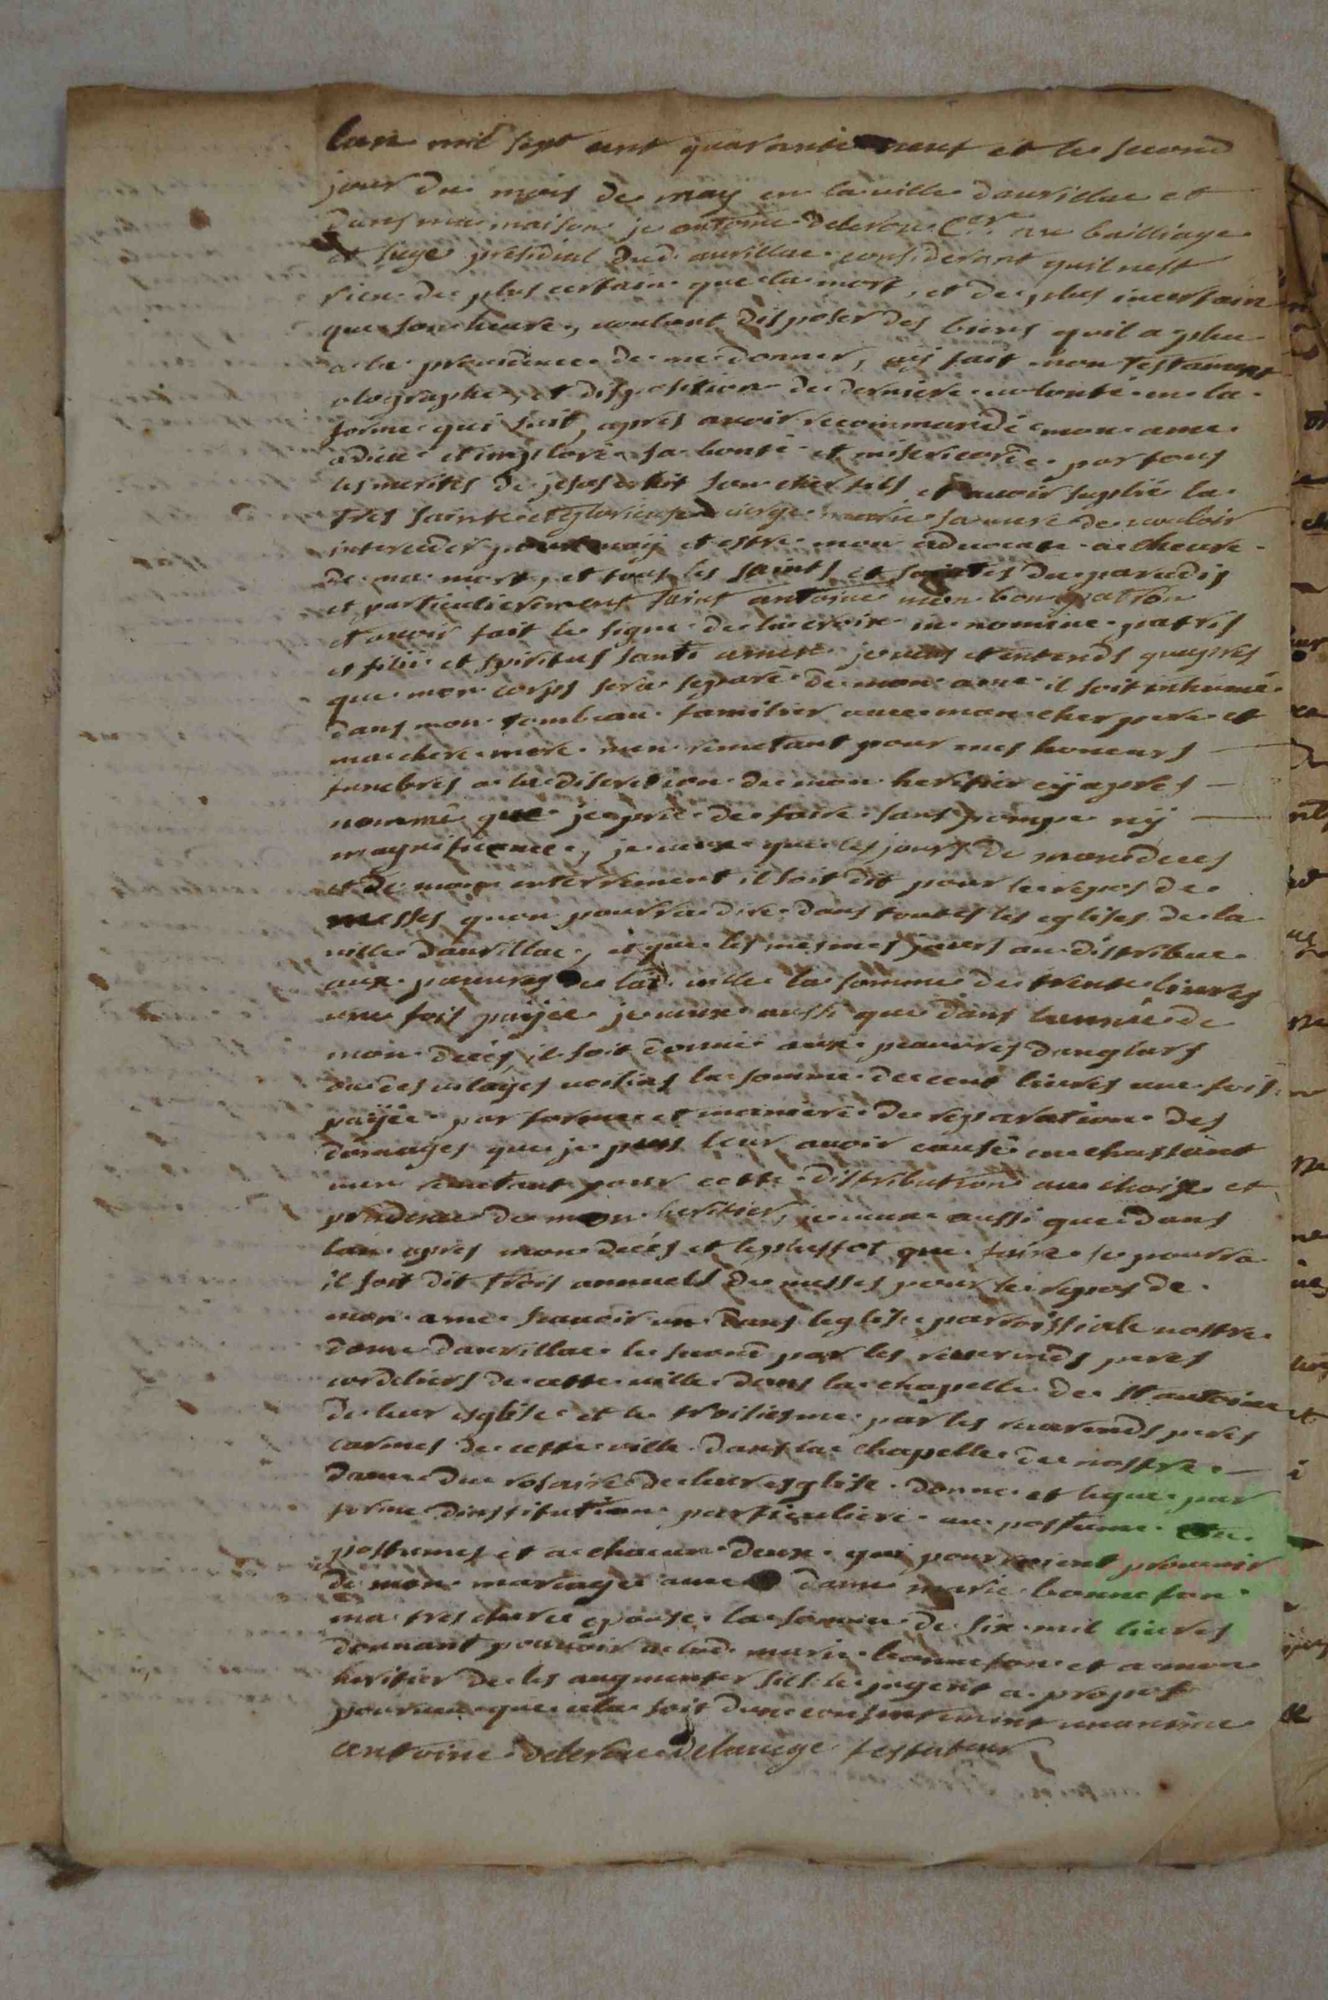 lan mil sept cent quarante neuf et le second
jour du mois de may en la ville daurillac et
dans ma maison je antoine deleron Cer au bailliage
et siege presidial dud aurillac considerant quil nest
rien de plus certain que la mort, et de plus incertain
que son heure, voulant disposer des biens quil a plu
a la providence de me donner, ay fait mon testament
olographe, et disposition de derniere volonté en la
forme qui suit, apres avoir recommandé mon ame
a dieu et imploré sa bonté et misericorde par tous
les merites de jesus christ son cher fils et avoir suplié la
tres sainte et glorieuse vierge marie sa mere de vouloir
interceder pour moy et estre mon advocate a lheure
de ma mort, et tous les saints et saintes du paradis
et particulierement saint antoine mon bon patron
et avoir fait le signe de la croix in nomine patris
et filii et spiritus santi amen je veus et entends quapres
que mon corps sera separé de mon ame il soit inhumé
dans mon tombeau familier avec mon cher pere et
ma chere mere men remetant pour mes honeurs
funebres a la discretion de mon heritier cy apres
nommé que je prie de faire sans pompe ny
magnificence, je veux que les jours de mon deces
et de mon enterrement il soit dit pour le repos de
messes quon pourra dire dans toutes les eglises de la
ville daurillac, et que les mesmes jours on distribue
aux pauvres de lad ville la somme de trente livres
une fois payée je veux aussi que dans lannée de
mon decés il soit donné aux pauvres danglars
ou des vilages voisins la somme de cent livres une fois
payée par forme et maniere de reparation des
domages que je puis leur avoir causé en chassant
men remetant pour cette distribution au choix et
prudence de mon heritier, je veux aussi que dans
lan apres mon decés et le plustot que faire se pourra
il soit dit trois annuels de messes pour le repos de
mon ame scavoir un dans leglise parroissiale nostre
dame daurillac le second par les reverends peres
cordeliers de cette ville dans la chapelle de st antoine
de leur esglise et le troisiesme par les reverends peres
carmes de cette ville dans la chapelle de nostre
dame du rosaire de leur esglise donne et legue par
forme dinstitution particuliere au postume ou
postumes et a chacun deux qui pourroient provenir
de mon mariage avec dame marie bonnefon
ma tres chere epouse la somme de six mil livres
donnant pouvoir a lad marie bonnefon et a mon
heritier de les augmenter sils le jugent a propos
pourveu que cela soit dun consentement unanime
antoine deleron delauige testateur